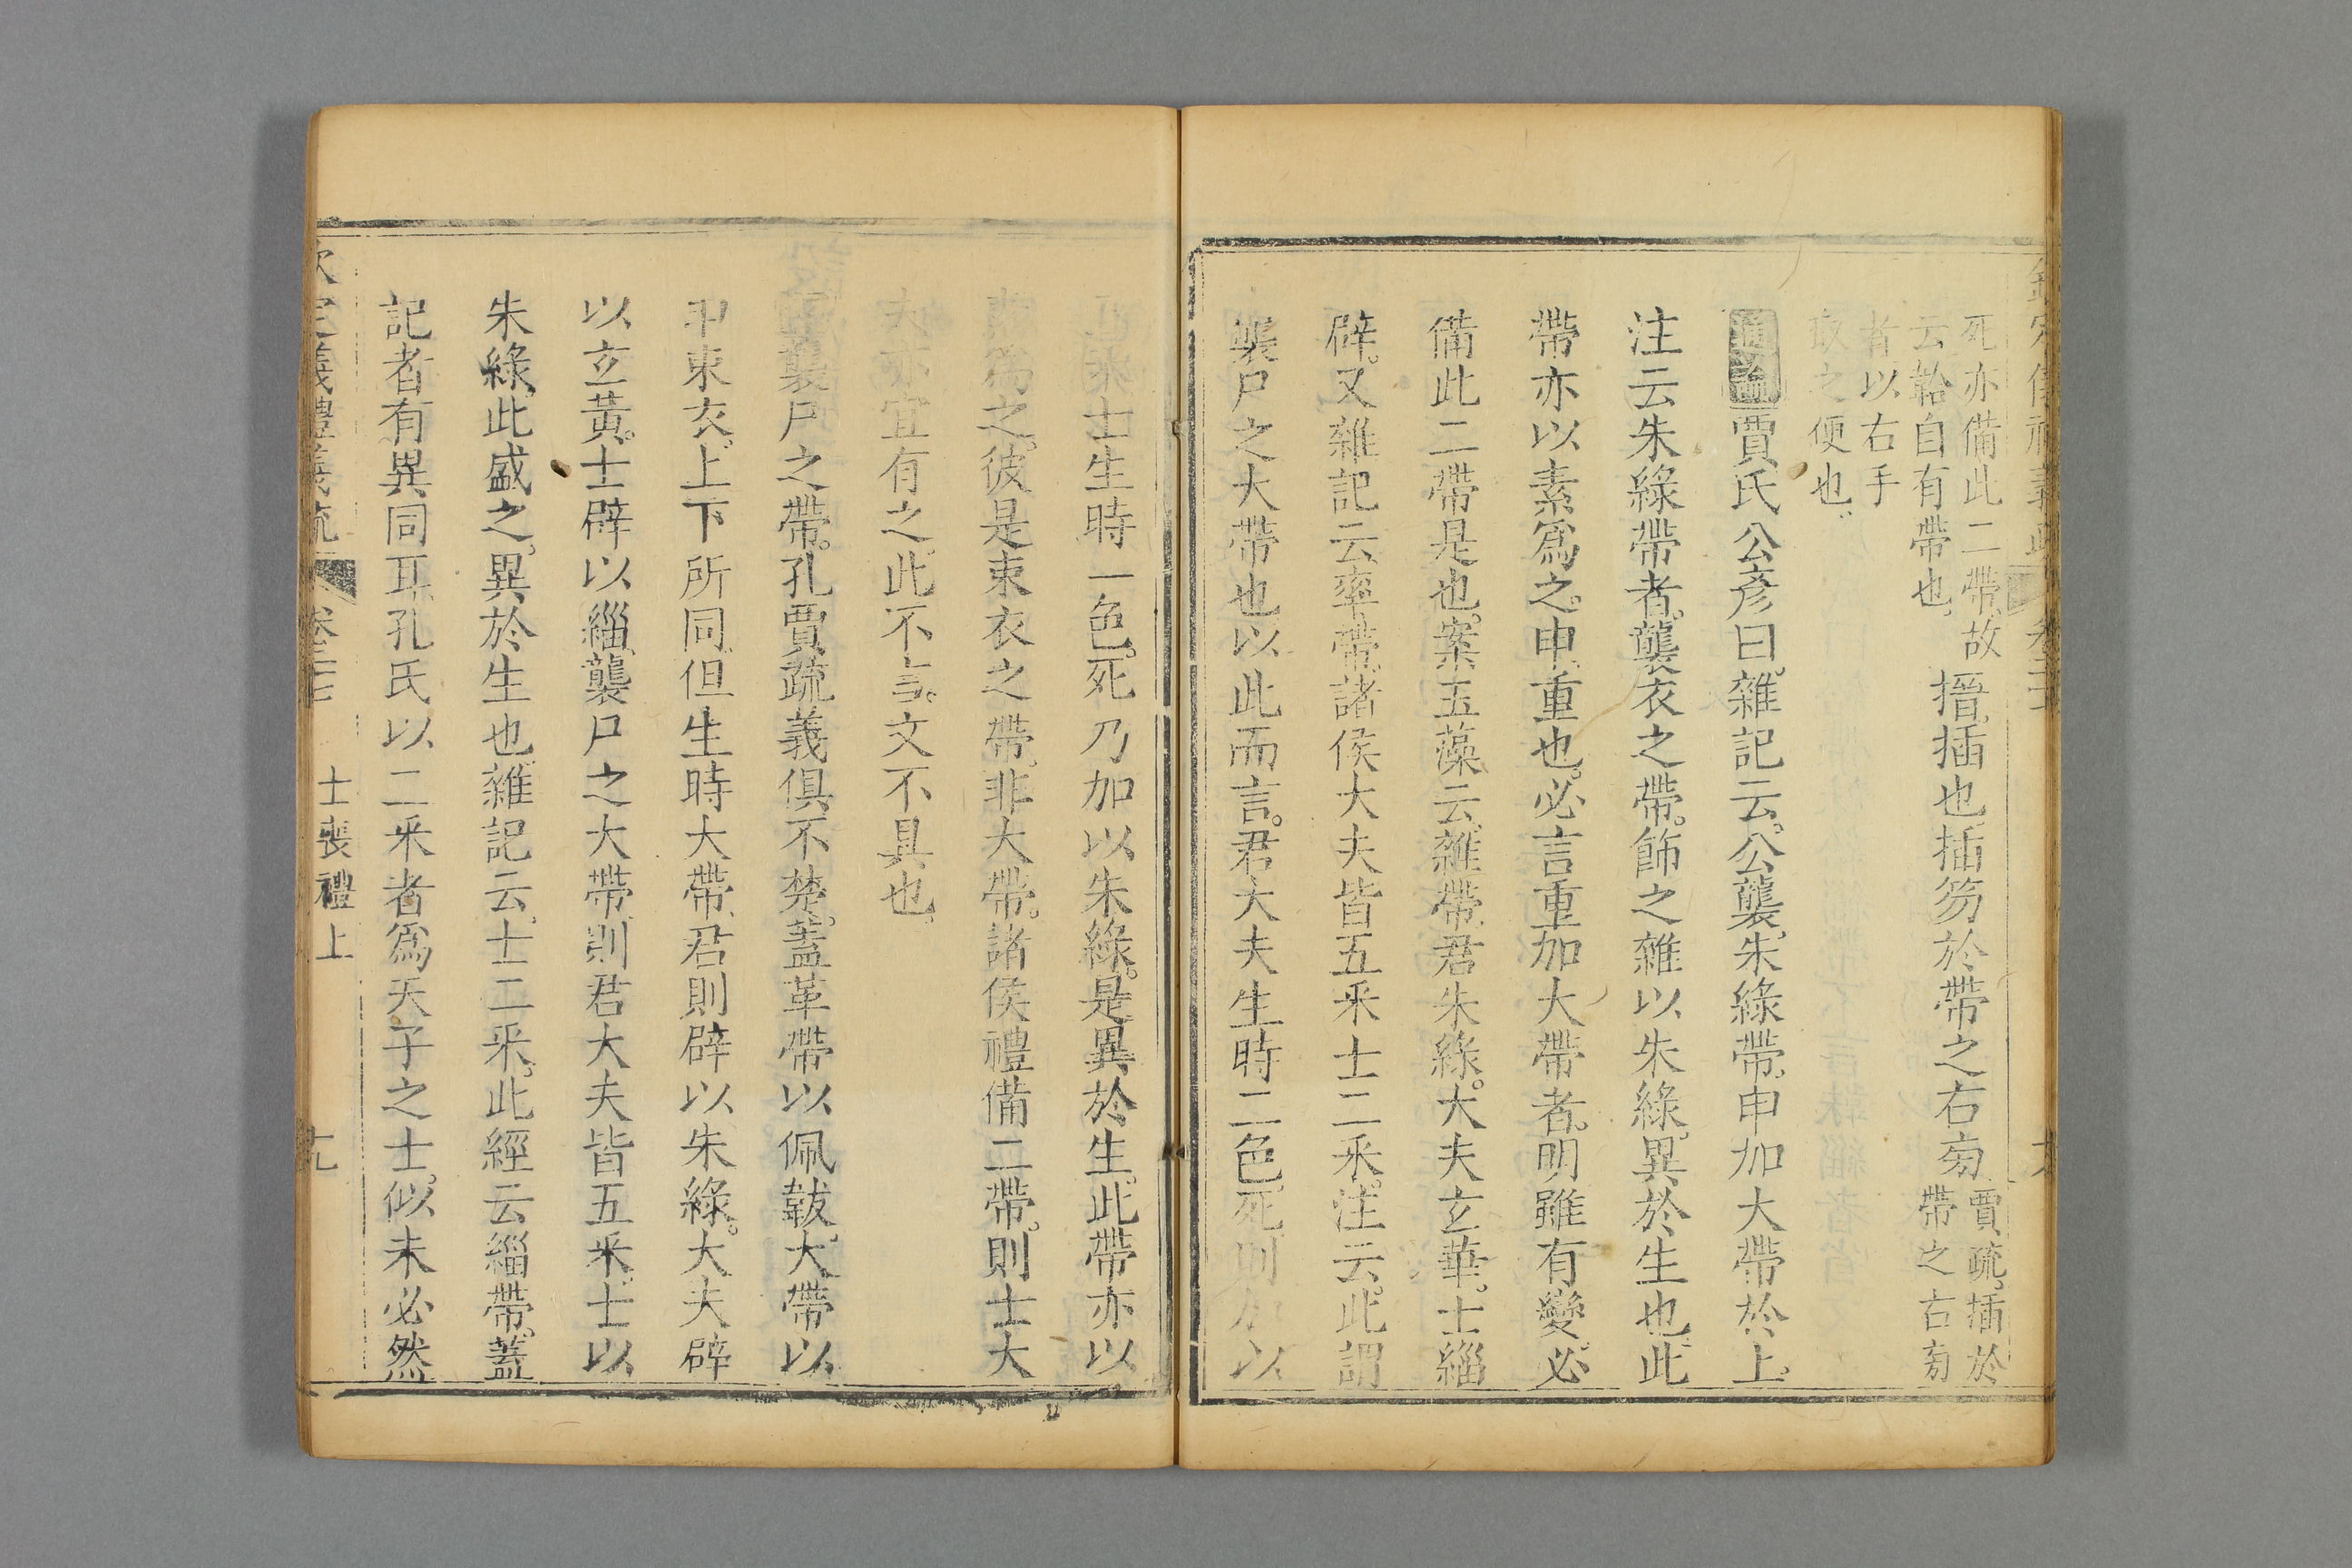 死亦備此二帶故
云韐自有帶也
搢插也插笏於帶之右旁
賈疏插於
帶之右旁
者以右手
取之便也
通論賈氏公彥曰雜記云公襲朱綠帶申加大帶於上
注云朱綠帶者襲衣之帶飾之雜以朱綠異於生也此
帶亦以素爲之申重也必言重加大帶者明雖有變必
備此二帶是也案玉藻云雜帶君朱綠大夫玄華士緇
辟又雜記云率帶諸侯大夫皆五采士二采注云此謂
襲尸之大帶也以此而言君大夫生時二色死則加以
士生時一色死乃加以朱綠是異於生此帶亦以
爲之彼是束衣之帶非大帶諸侯禮備二帶則士大
夫亦宜有之此不言文不具也
襲尸之帶孔賈疏義俱不楚蓋革帶以佩韍大帶以
申束衣上下所同但生時大帶君則辟以朱綠大夫辟
以玄黃士辟以緇襲尸之大帶則君大夫皆五采士以
朱綠此盛之異於生也雜記云士二采此經云緇帶蓋
記者有異同耳孔氏以二采者爲天子之士似未必然
士喪禮上